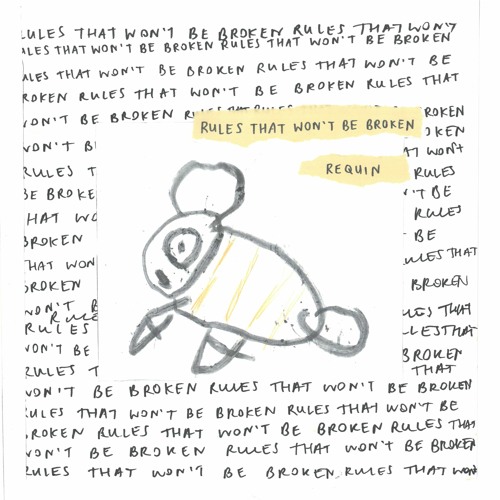 RULES THAT WON'T BE BROKEN RULES THAT WON'T
RULES THAT WON'T BE BROKEN RULES THAT WON'T BE BROKEN
RULES THAT WON'T BE BROKEN RULES THAT WON'T BE
BROKEN RULES THAT WON'T BE BROKEN RULES THAT
WON'T BE BROKEN
RULES THAT WON'T BE BROKEN
ROKEN
OKEN
WON'T B
WON'T
REQUIN
RULES T
RULES
BE BROKE
'T BE
HAT WO
RULES
BROKEN
BE
HAT WON
RULES THAT
BROKEN
BROKEN
WON'T B
RULE
THAT
RULES
LESTHAT
WON'T BE
BROKEN
RULES T
THAT
WON'T BE BROKEN RULES THAT WON'T BE BROKEN
RULES THAT WON'T BE BROKEN RULES THAT WON'T BE
BROKEN RULES THAT WON'T BE BROKEN RULES THAT
WON'T BE BROKEN RULES THAT WON'T BE BROKEN
RULES THAT WON'T BE BROKEN RULES THAT WON